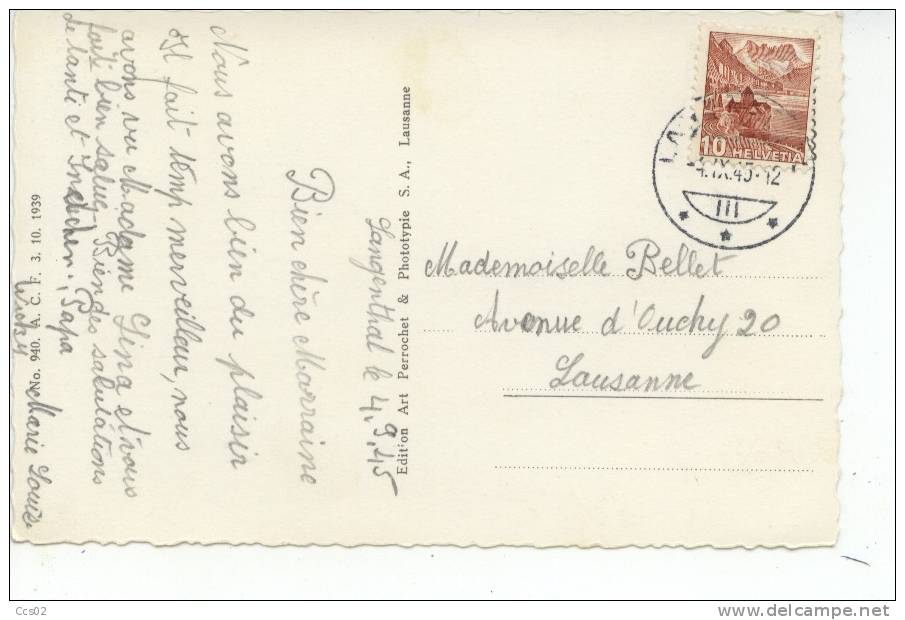 Langenthal le 4.9.45
Bien chère Marraine
Nous avons bien du plaisir
Il fait temp merveilleux, nous
avons vu Madame Gina et vous
fait bien saluer Biendes salutations
de tanti et Papa
Marie Louise
No. 940. A. C. F. 3. 10. 1939
Edition Art Perrochet & Phototypie S. A., Lausanne
10 HELVETIA
4.IX.45-12
III
Mademoiselle Bellet
Avenue d'Ouchy 20
Lausanne
Ccs02
www.delcampe.net